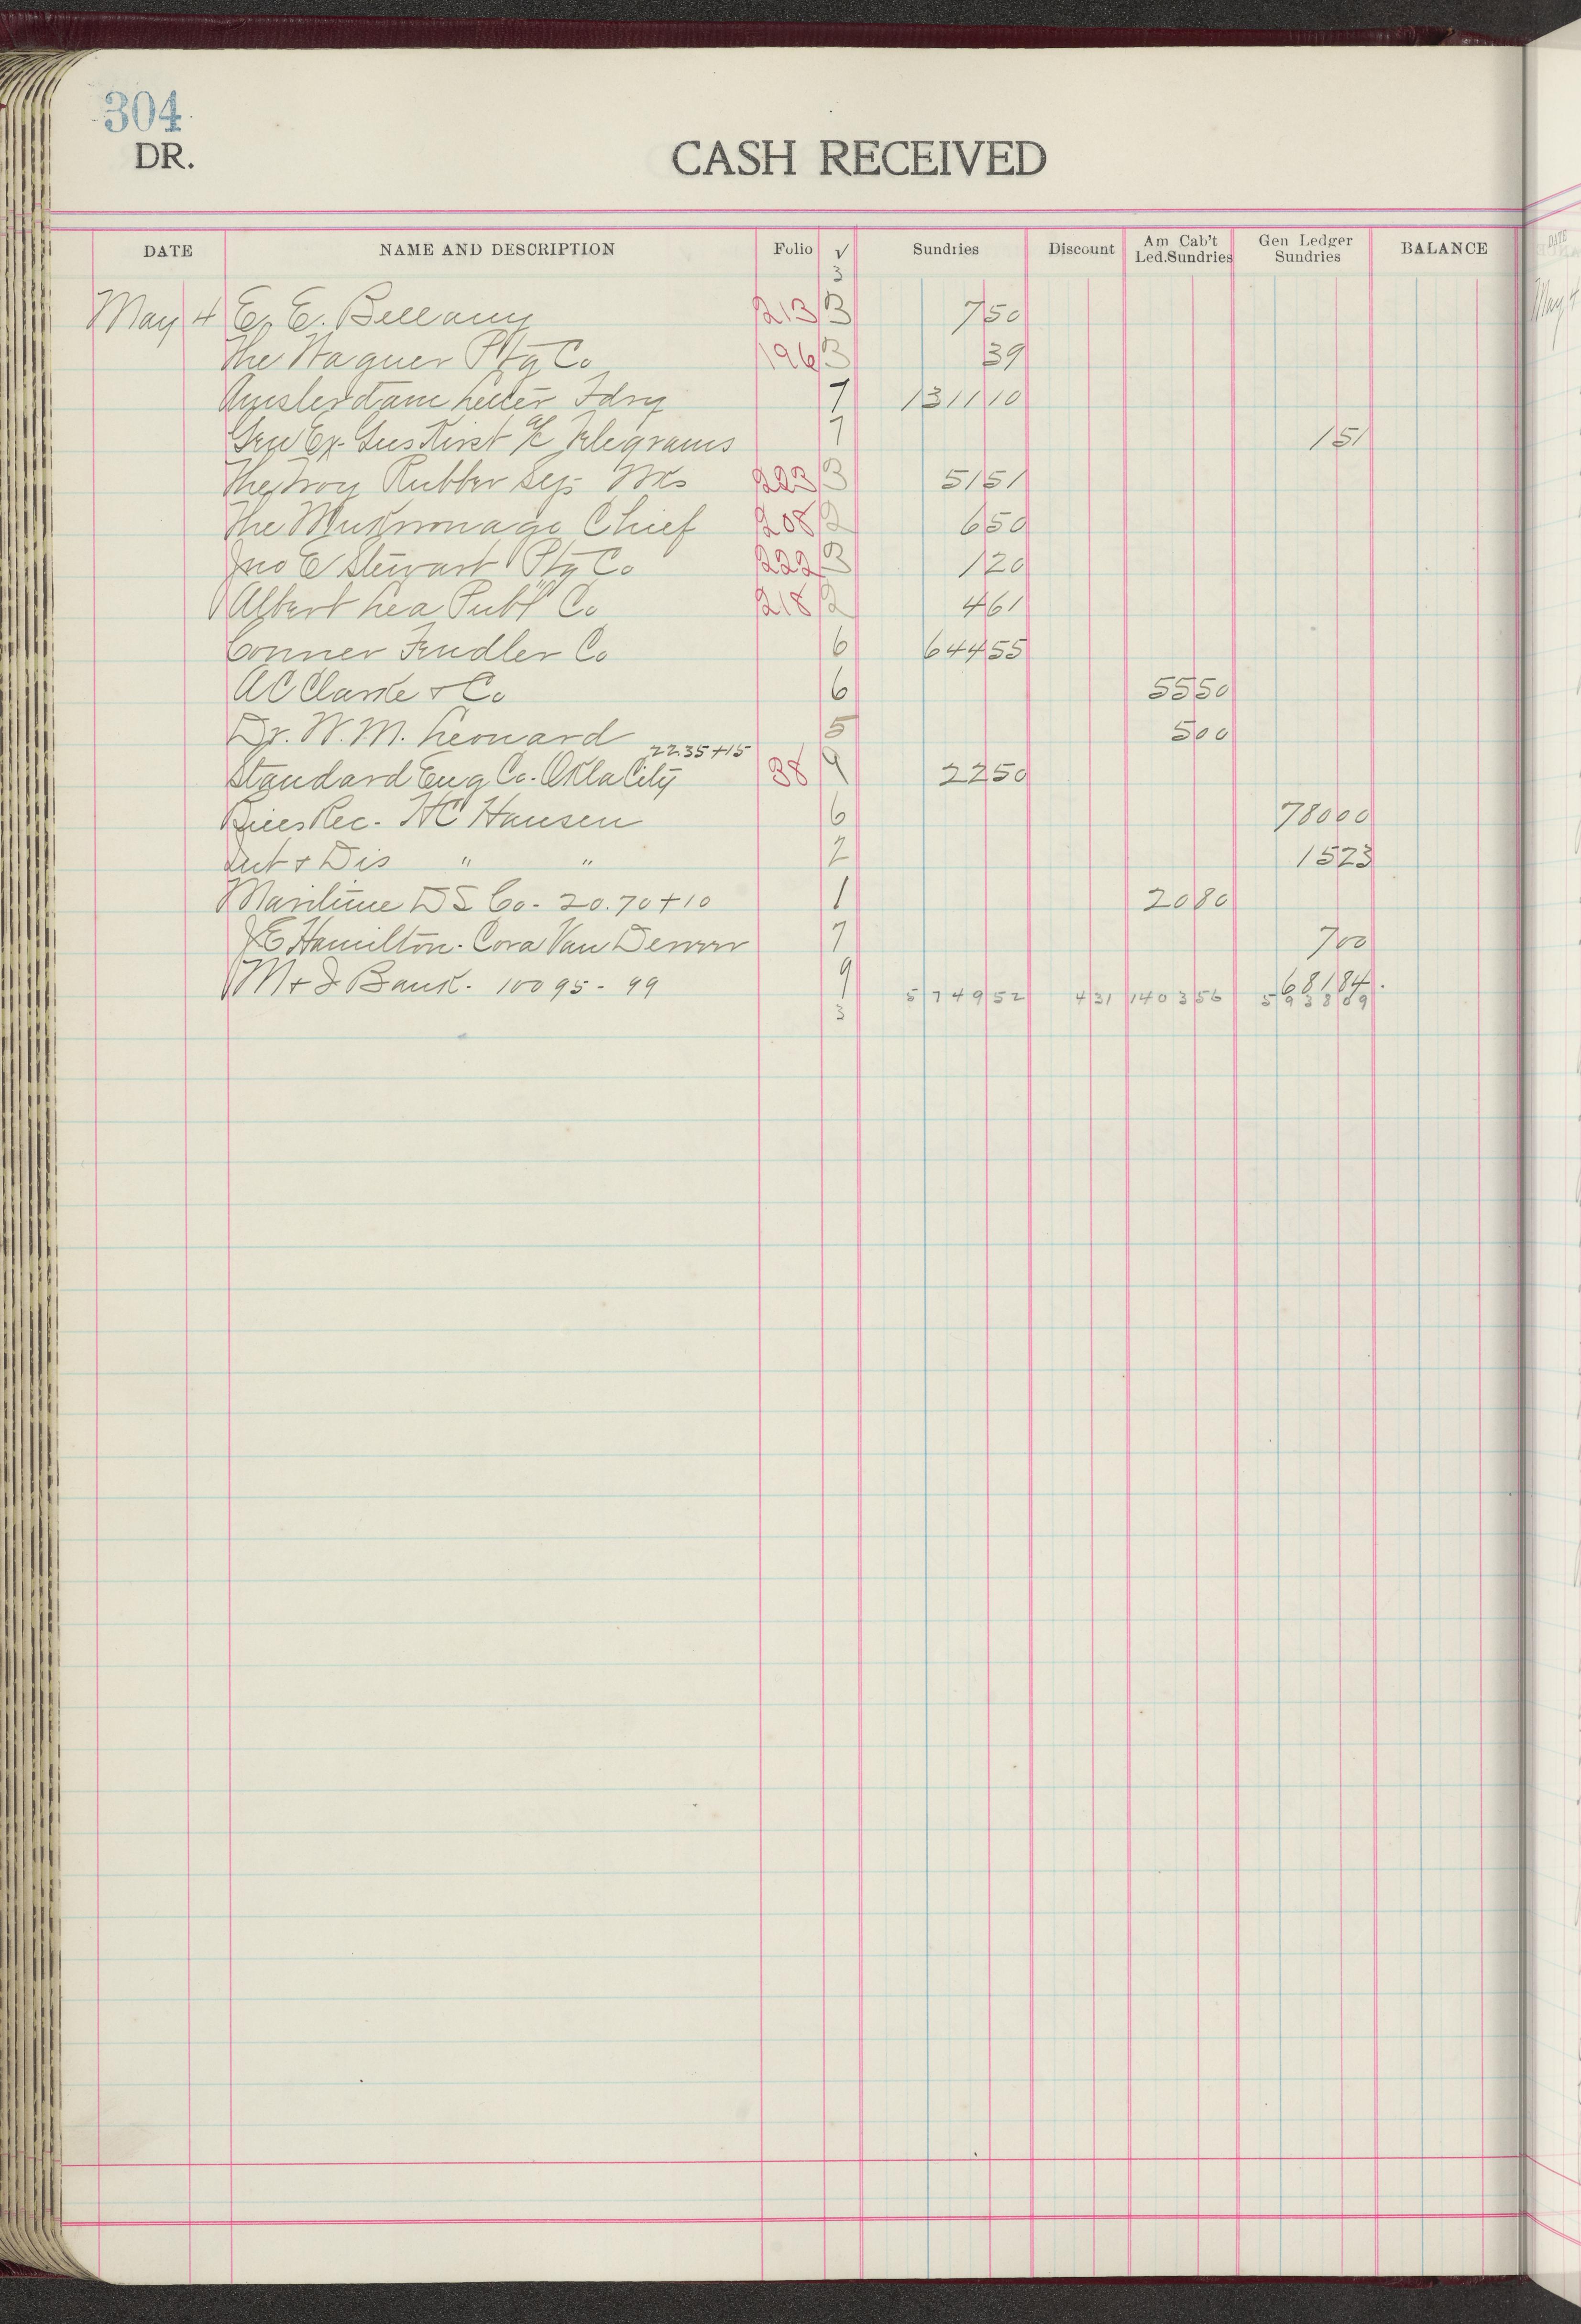 304
DR.
CASH RECEIVED
DATE NAME AND DESCRIPTION Folio √ Sundries Discount Am Cab't Led.Sundries Gen Ledger Sundries BALANCE
3
May 4 E. E. Bellamy 213 3 7 50
The Wagner Ptg Co 196 3 39
Amsterdam Letter Fdry 7 1311 10
Gen Ex- Gus Kirst a/c Telegrams 7 1 51
The Troy Rubber Wks 223 3 51 51
The Mukwonago Chief 208 2 6 50
Jno E Stewart Ptg Co 222 3 1 20
Albert Lea Publ Co 218 2 4 61
Conner Fendler Co 6 644 55
A C Clarke & Co 6 55 50
Dr. W. M. Leonard 5 5 00
22.35+15
Standard Eng Co. Okla City 38 9 22 50
Bills Rec. H C Hansen 6 780 00
Int & Dis " " 2 15 23
Maritime D S Co - 20.70+10 1 20 80
J E Hamilton. Cora Van Deveer 7 7 00
M & I Bank. 10095 - 99 9 681 84
3 5749 52 4 31 1403 56 5938 09